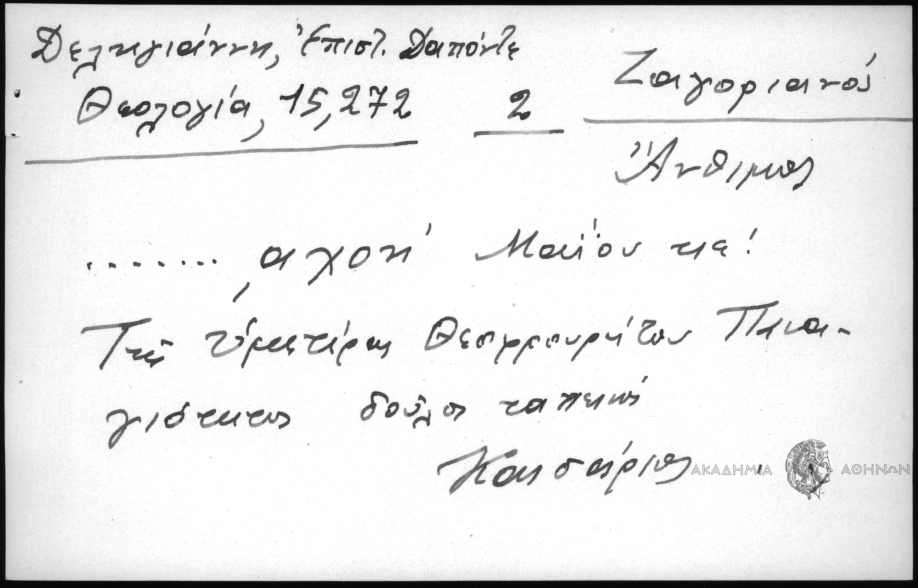 Δεληγιάννη, Ἐπιστ. Δαπόντε
Θεολογία, 15, 272
2
Ζαγοριανός
Ἄνθιμος
........ ͵αχοη΄ Μαΐου κε!
Τῆς Ὑμετέρας Θεοφρουρήτου Πανα-
γιότητος δοῦλος ταπεινός
Καισάριος
ΑΚΑΔΗΜΙΑ ΑΘΗΝΩΝ